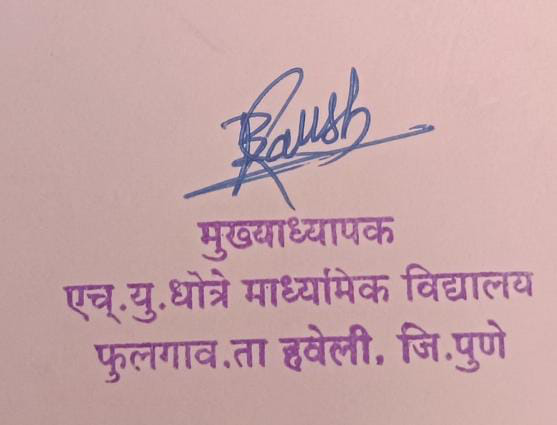 मुख्याध्यापक
एच्.यु.धोत्रे माध्यामेक विद्यालय
फुलगाव.ता हवेली, जि.पुणे